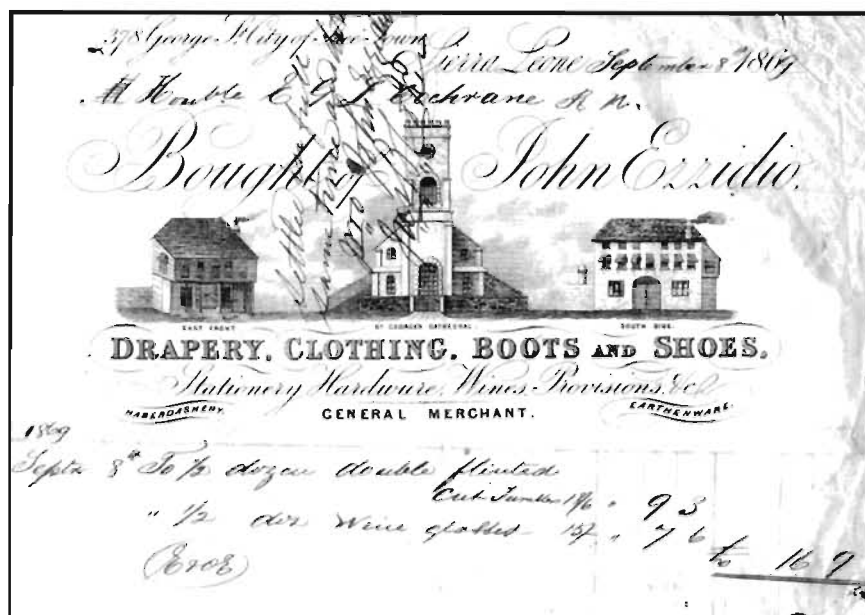 278 George St City of Free Town
Sierra Leone September 8th 1869
Honble E G L Cochrane R N.
Bought of John Ezzidio.
EAST FRONT
ST GEORGES CATHEDRAL
SOUTH SIDE.
DRAPERY. CLOTHING. BOOTS AND SHOES.
Stationery Hardware, Wines, Provisions, &c
HABERDASHERY.
GENERAL MERCHANT.
EARTHENWARE.
1869
Septr 8th To 1/2 dozen double flinted
Cut Tumblers 18/6 " 9 3
" 1/2 doz Wine glasses 15/ " 7 6
(E&OE)
16 9
Settled
John Ezzidio